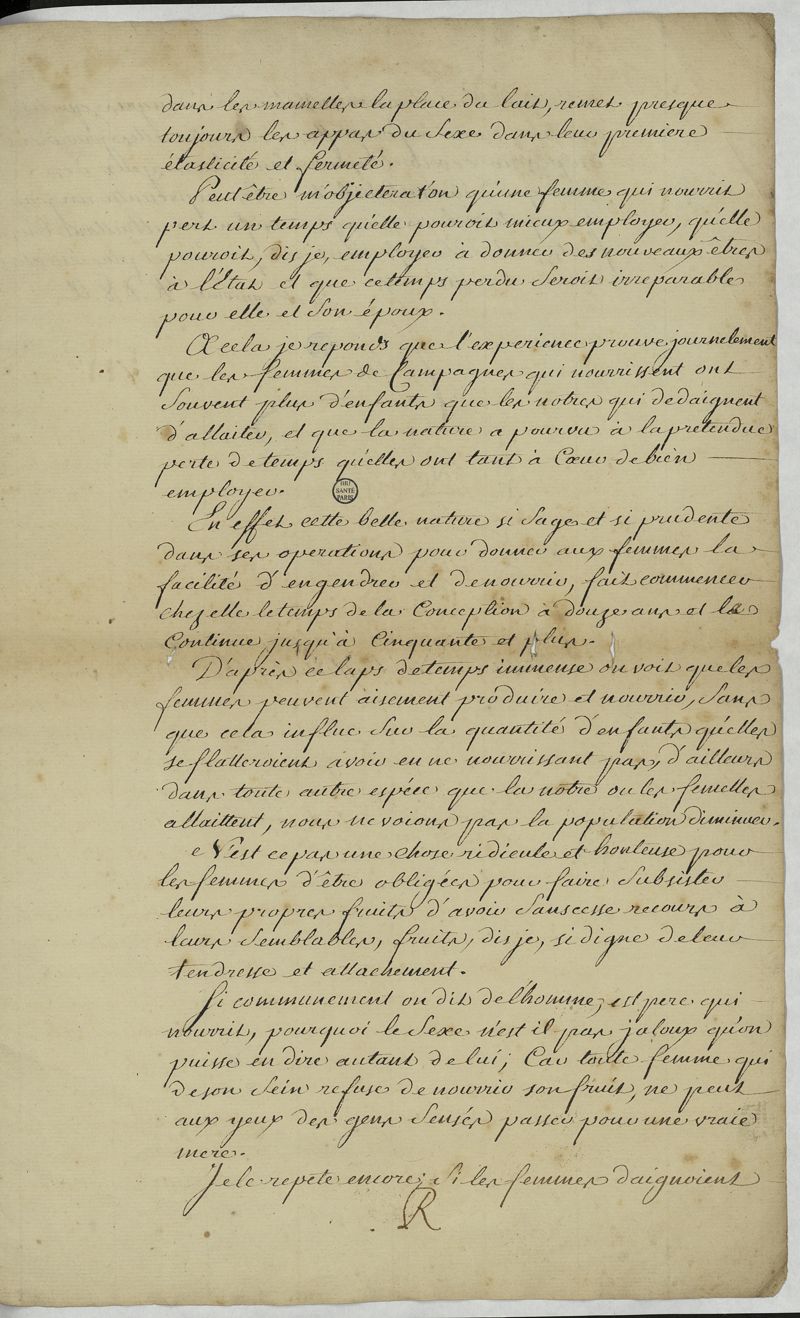 dans les mamelles la place du lait, remet presque
toujours les appas du Sexe dans leur premiere
élasticité et fermeté.
Peut être m'objectera t'on qu'une femme qui nourrit
pert un temps qu'elle pouroit mieux employer, qu'elle
pouroit, dis je, employer à donner des nouveaux êtres
à l'Etat et que ce temps perdu Seroit irreparable
pour elle et Son époux.
A cela je reponds que l'experience prouve journelement
que les femmes de Campagnes qui nourrissent ont
Souvent plus d'enfants que les notres qui dedaignent
d'allaiter, et que la nature a pourvu à la pretendue
perte de temps qu'elles ont tant à Cœur de bien
employer.
BIU
SANTE
PARIS
En effet cette belle nature si Sage et si prudente
dans ses operations pour donner aux femmes la
facilité d'engendrer et de nourrir, fait commencer
chez elle le temps de la Conception à douze ans et le
Continue jusqu'à Cinquante et plus.
D'après ce laps de temps immense on voit que les
femmes peuvent aisement produire et nourrir, Sans
que cela influe Sur la quantité d'enfants qu'elles
se flatteroient avoir en ne nourrissant pas, d'ailleurs
dans toute autre espéce que la notre ou les femelles
allaittent, nous ne voions pas la population diminuer.
N'est ce pas une chose ridicule et honteuse pour
les femmes d'être obligées pour faire Subsister
leurs propres fruits d'avoir Sans cesse recours à
leurs Semblables, fruits, dis je, si digne de leur
tendresse et attachement.
Si communement on dit de l'homme, est pere qui
nourrit, pourquoi le Sexe n'est il pas jaloux qu'on
puisse en dire autant de lui; Car toute femme qui
de son Sein refuse de nourrir son fruit, ne peut
aux yeux des gens Sensés passer pour une vraie
mere.
Je le repete encore; Si les femmes daignoient
R